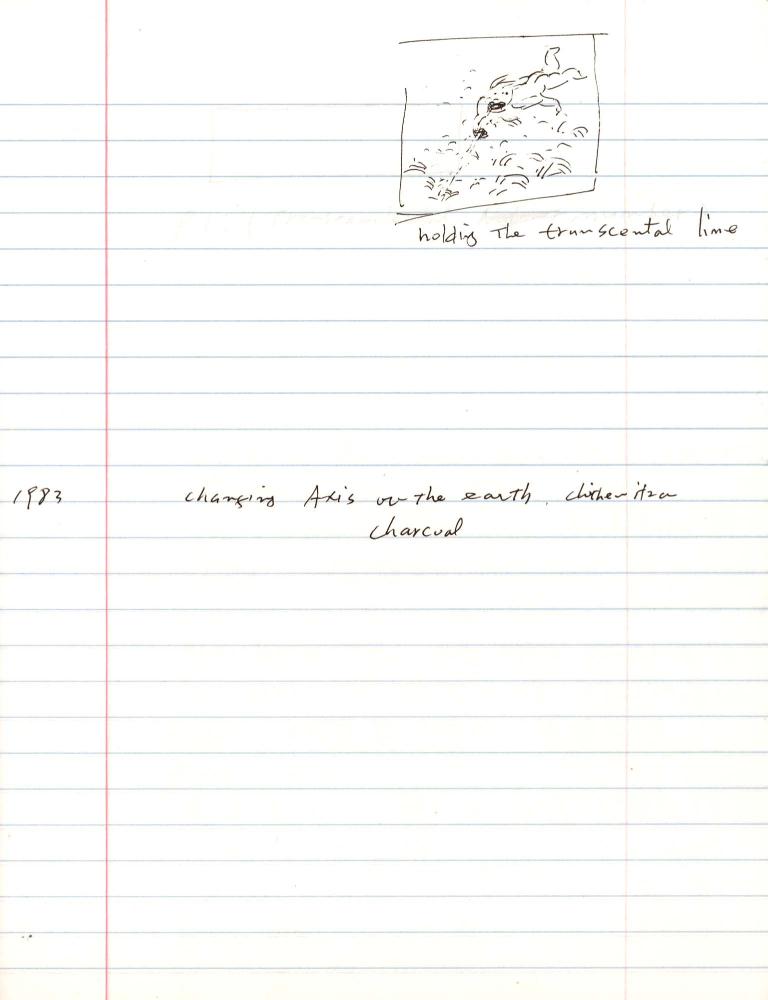 holding The transcental line
1983 changing Axis on the earth. chichen itza
charcoal